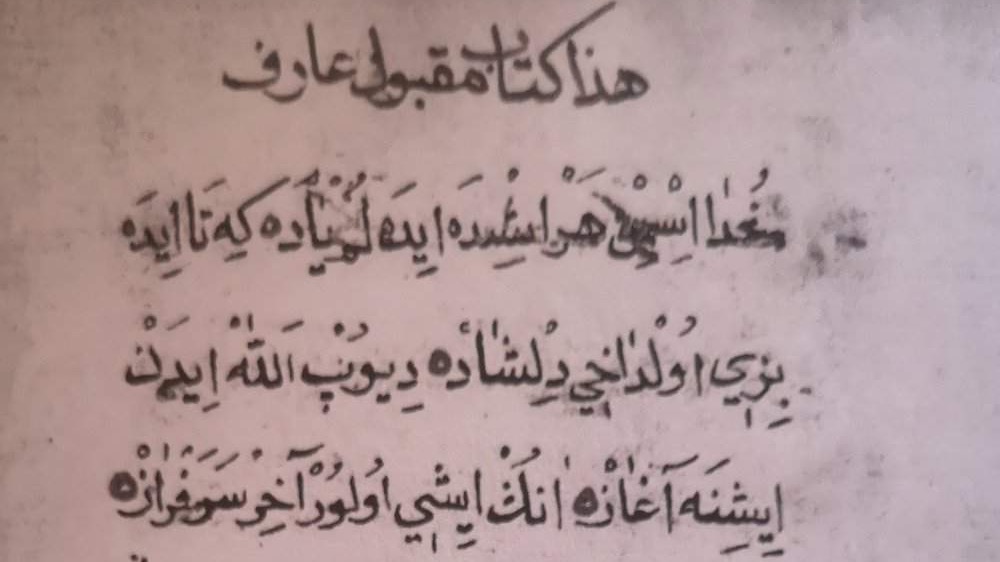 هذا كتاب مقبول عارف
خُدٰا اِسْمِنْ هَرْ اِشْدَه اِيدَه لُمْ يَادْ ه كِه تَا اِيدَه
بِزِي اُولْ دٰاخِي دِلْشَادْ ه دِيُوبْ اَللّٰه اِيدَنْ
اِيشِنَه آغَازْ ه اَنُكْ اِيشِي اُولُورْ آخِرْ سَرَفْرَازْ ه